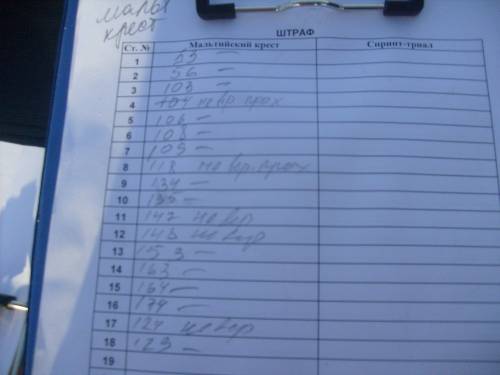 мальт
крест
ШТРАФ
Ст. № Мальтийский крест Спринт-триал
1 53 —
2 56 —
3 103 —
4 104 не вр. прох
5 106 —
6 108 —
7 109 —
8 118 не вер. прох
9 134 —
10 135 —
11 142 не вер
12 143 не вер
13 153 —
14 163 —
15 164 —
16 174 —
17 124 не вер
18 129 —
19